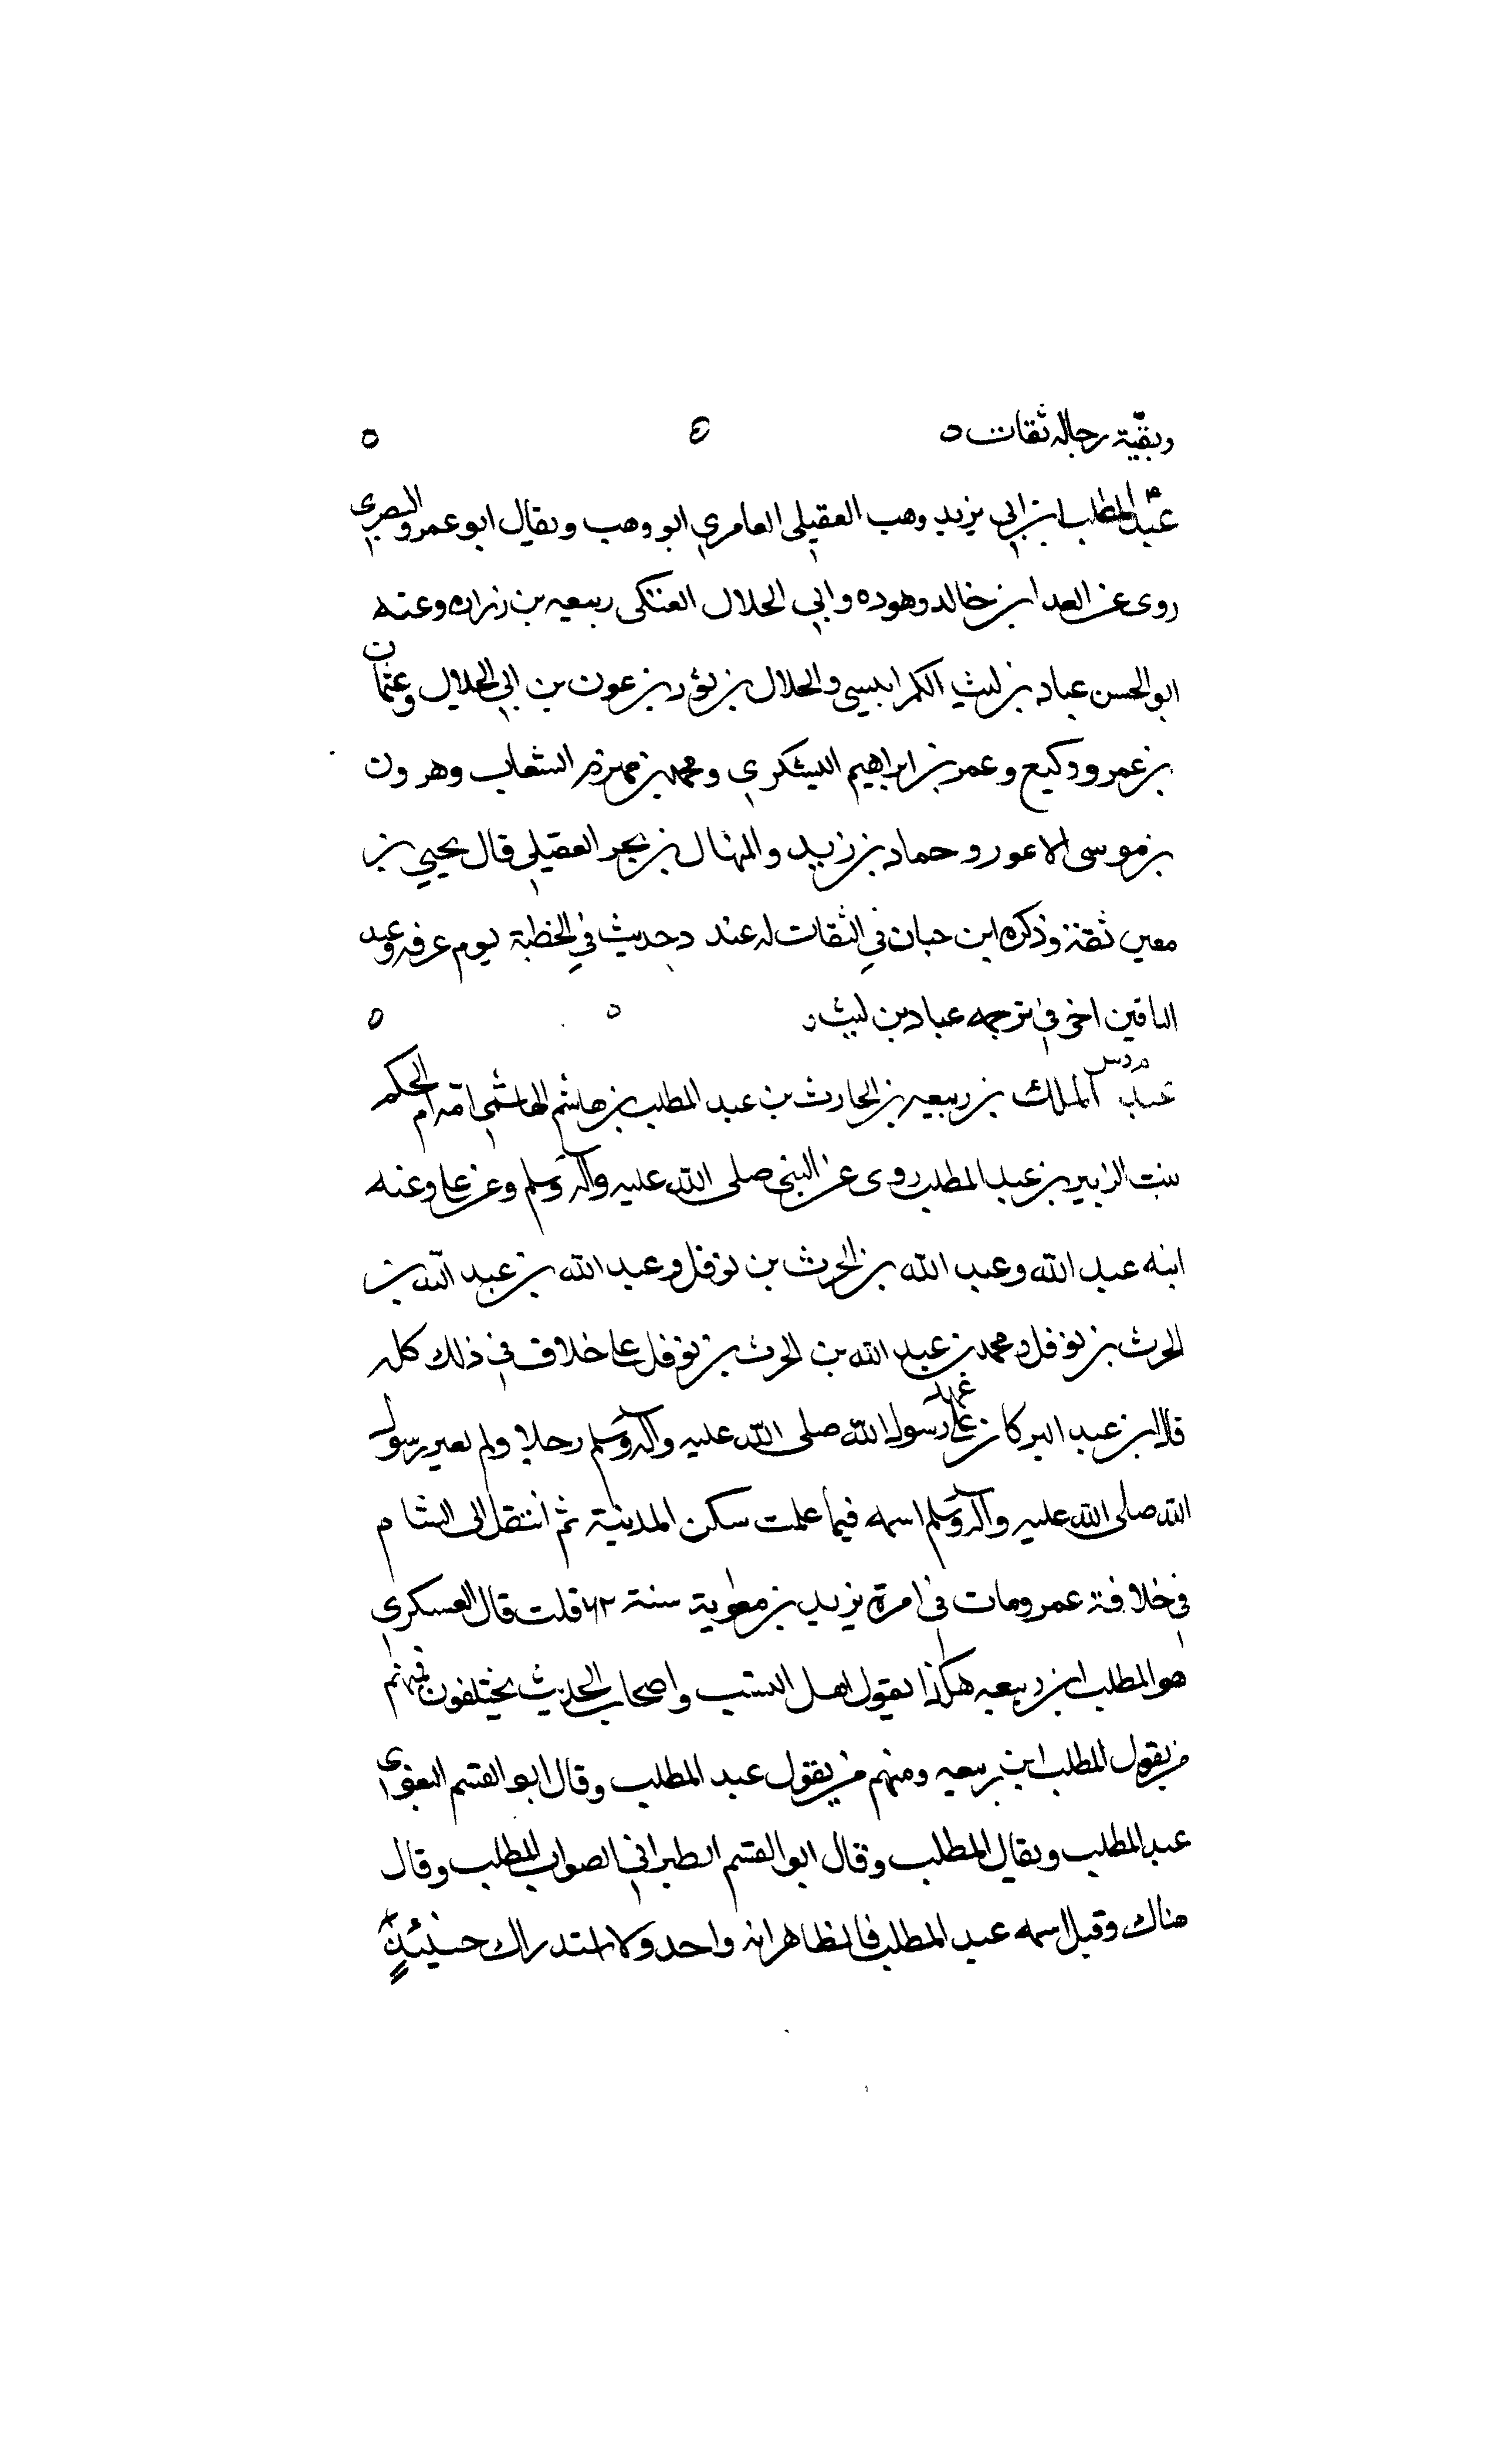 وبقية رجاله ثقات ه
عبد المطلب ابن ابي يزيد وهب العقيلي العامري ابو وهب ويقال ابو عمرو البصري
روى عن العدا بن خالد وهوده وابي الحلال العتكي ربيعه بن زراره وعنه
ابو الحسن عباد بن ليث الكرابيسي والحلال بن ثور بن عون بن ابي الحلال وعثمان
بن عمر ووكيع وعمر بن ابراهيم اليشكري ومحمد بن مهزم الشعاب وهرون
بن موسى الاعور وحماد بن زيد والمنهال بن بحر العقيلي قال يحيي بن
معين ثقة وذكره ابن حبان في الثقات له عند د حديث في الخطبة يوم عرفه وعند
الباقين اخر في ترجمه عباد بن ليث
م د س
عبد المطلب بن ربيعه بن الحارث بن عبد المطلب بن هاشم الهاشمي امه ام الحكم
بنت الزبير بن عبد المطلب روى عن النبي صلى الله عليه وآله وسلم وعن علي وعنه
ابنه عبد الله وعبد الله بن الحرث بن نوفل وعبد الله بن عبد الله بن
الحرث بن نوفل ومحمد بن عبد الله بن الحرث بن نوفل على خلاف في ذلك كله
قال ابن عبد البر كان على عهد رسول الله صلى الله عليه وآله وسلم رجلا ولم يغير رسول
الله صلى الله عليه وآله وسلم اسمه فيما علمت سكن المدينة ثم انتقل الى الشام
في خلافة عمر ومات في امرة يزيد بن معوية سنة ٦٢ قلت قال العسكري
هو المطلب ابن ربيعه هكذا يقول اهل النسب واصحاب الحديث يختلفون فمنهم
من يقول المطلب ابن ربيعه ومنهم من يقول عبد المطلب وقال ابو القسم البغوي
عبد المطلب ويقال المطلب وقال ابو القسم الطبراني الصواب المطلب وقال
هناك وقيل اسمه عبد المطلب فالظاهر انه واحد ولا استدراك حينئذ